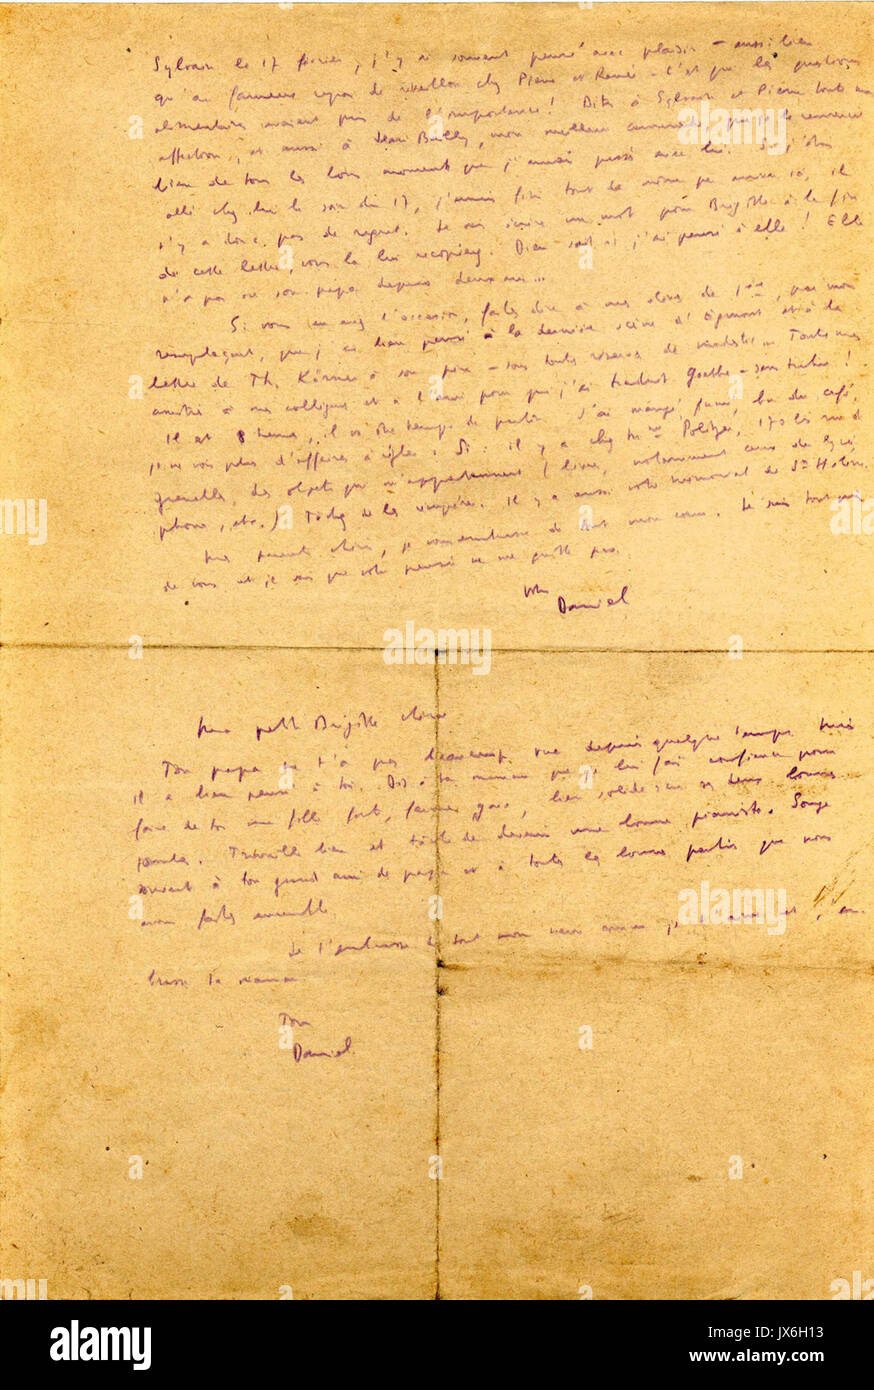 Sylvain le 17 février, j'y ai souvent pensé avec plaisir – aussi bien
qu'au fameux repas de réveillon chez Pierre et Renée – c'est que les questions
alimentaires avaient pris de l'importance ! Dites à Sylvain et Pierre toute mon
affection, et aussi à Jean Bailly, mon meilleur camarade, que je le remercie
bien de tous les bons moments que j'aurai passés avec lui. Si j'étais
allé chez lui le soir du 17, j'aurais fini tout de même par arriver ici, il
n'y a donc pas de regret. Je vais écrire un mot pour Brigitte à la fin
de cette lettre, vous la lui recopierez. Dieu sait si j'ai pensé à elle ! Elle
n'a pas vu son papa depuis deux ans...
Si vous en avez l'occasion, faites dire à mes élèves de 1ère, par mon
remplaçant, que j'ai bien pensé à la dernière scène d'Egmont et à la
lettre de Th. Körner à son père – sous toutes réserves de modestie – Toutes mes
amitiés à mes collègues et à l'ami pour qui j'ai traduit Goethe – sans trahir !
Il est 8 heures, il va être temps de partir. J'ai mangé, fumé, bu du café,
je ne vois plus d'affaires à régler. Si : il y a chez Mme Politzer, 170 bis rue de
Grenelle, des objets qui m'appartiennent (livres, notamment cours de lycée,
phono, etc.) Tâchez de les récupérer. Il y a aussi votre mémorial de Ste Hélène.
Mes parents chéris, je vous embrasse de tout mon cœur. Je suis tout près
de vous et je sais que votre pensée ne me quitte pas.
Votre
Daniel
Ma petite Brigitte chérie
Ton papa ne t'a pas beaucoup vue depuis quelque temps mais
il a bien pensé à toi. Dis à ta maman que je lui fais confiance pour
faire de toi une fille forte, gaie, bien solide sur ses deux bonnes
jambes. Travaille bien et tâche de devenir une bonne pianiste. Songe
souvent à ton grand ami de papa et à toutes les bonnes parties que nous
avons faites ensemble.
Je t'embrasse de tout mon cœur comme je t'aime et, em-
brasse ta maman
Ton
Daniel
alamy
Image ID: JX6H13
www.alamy.com